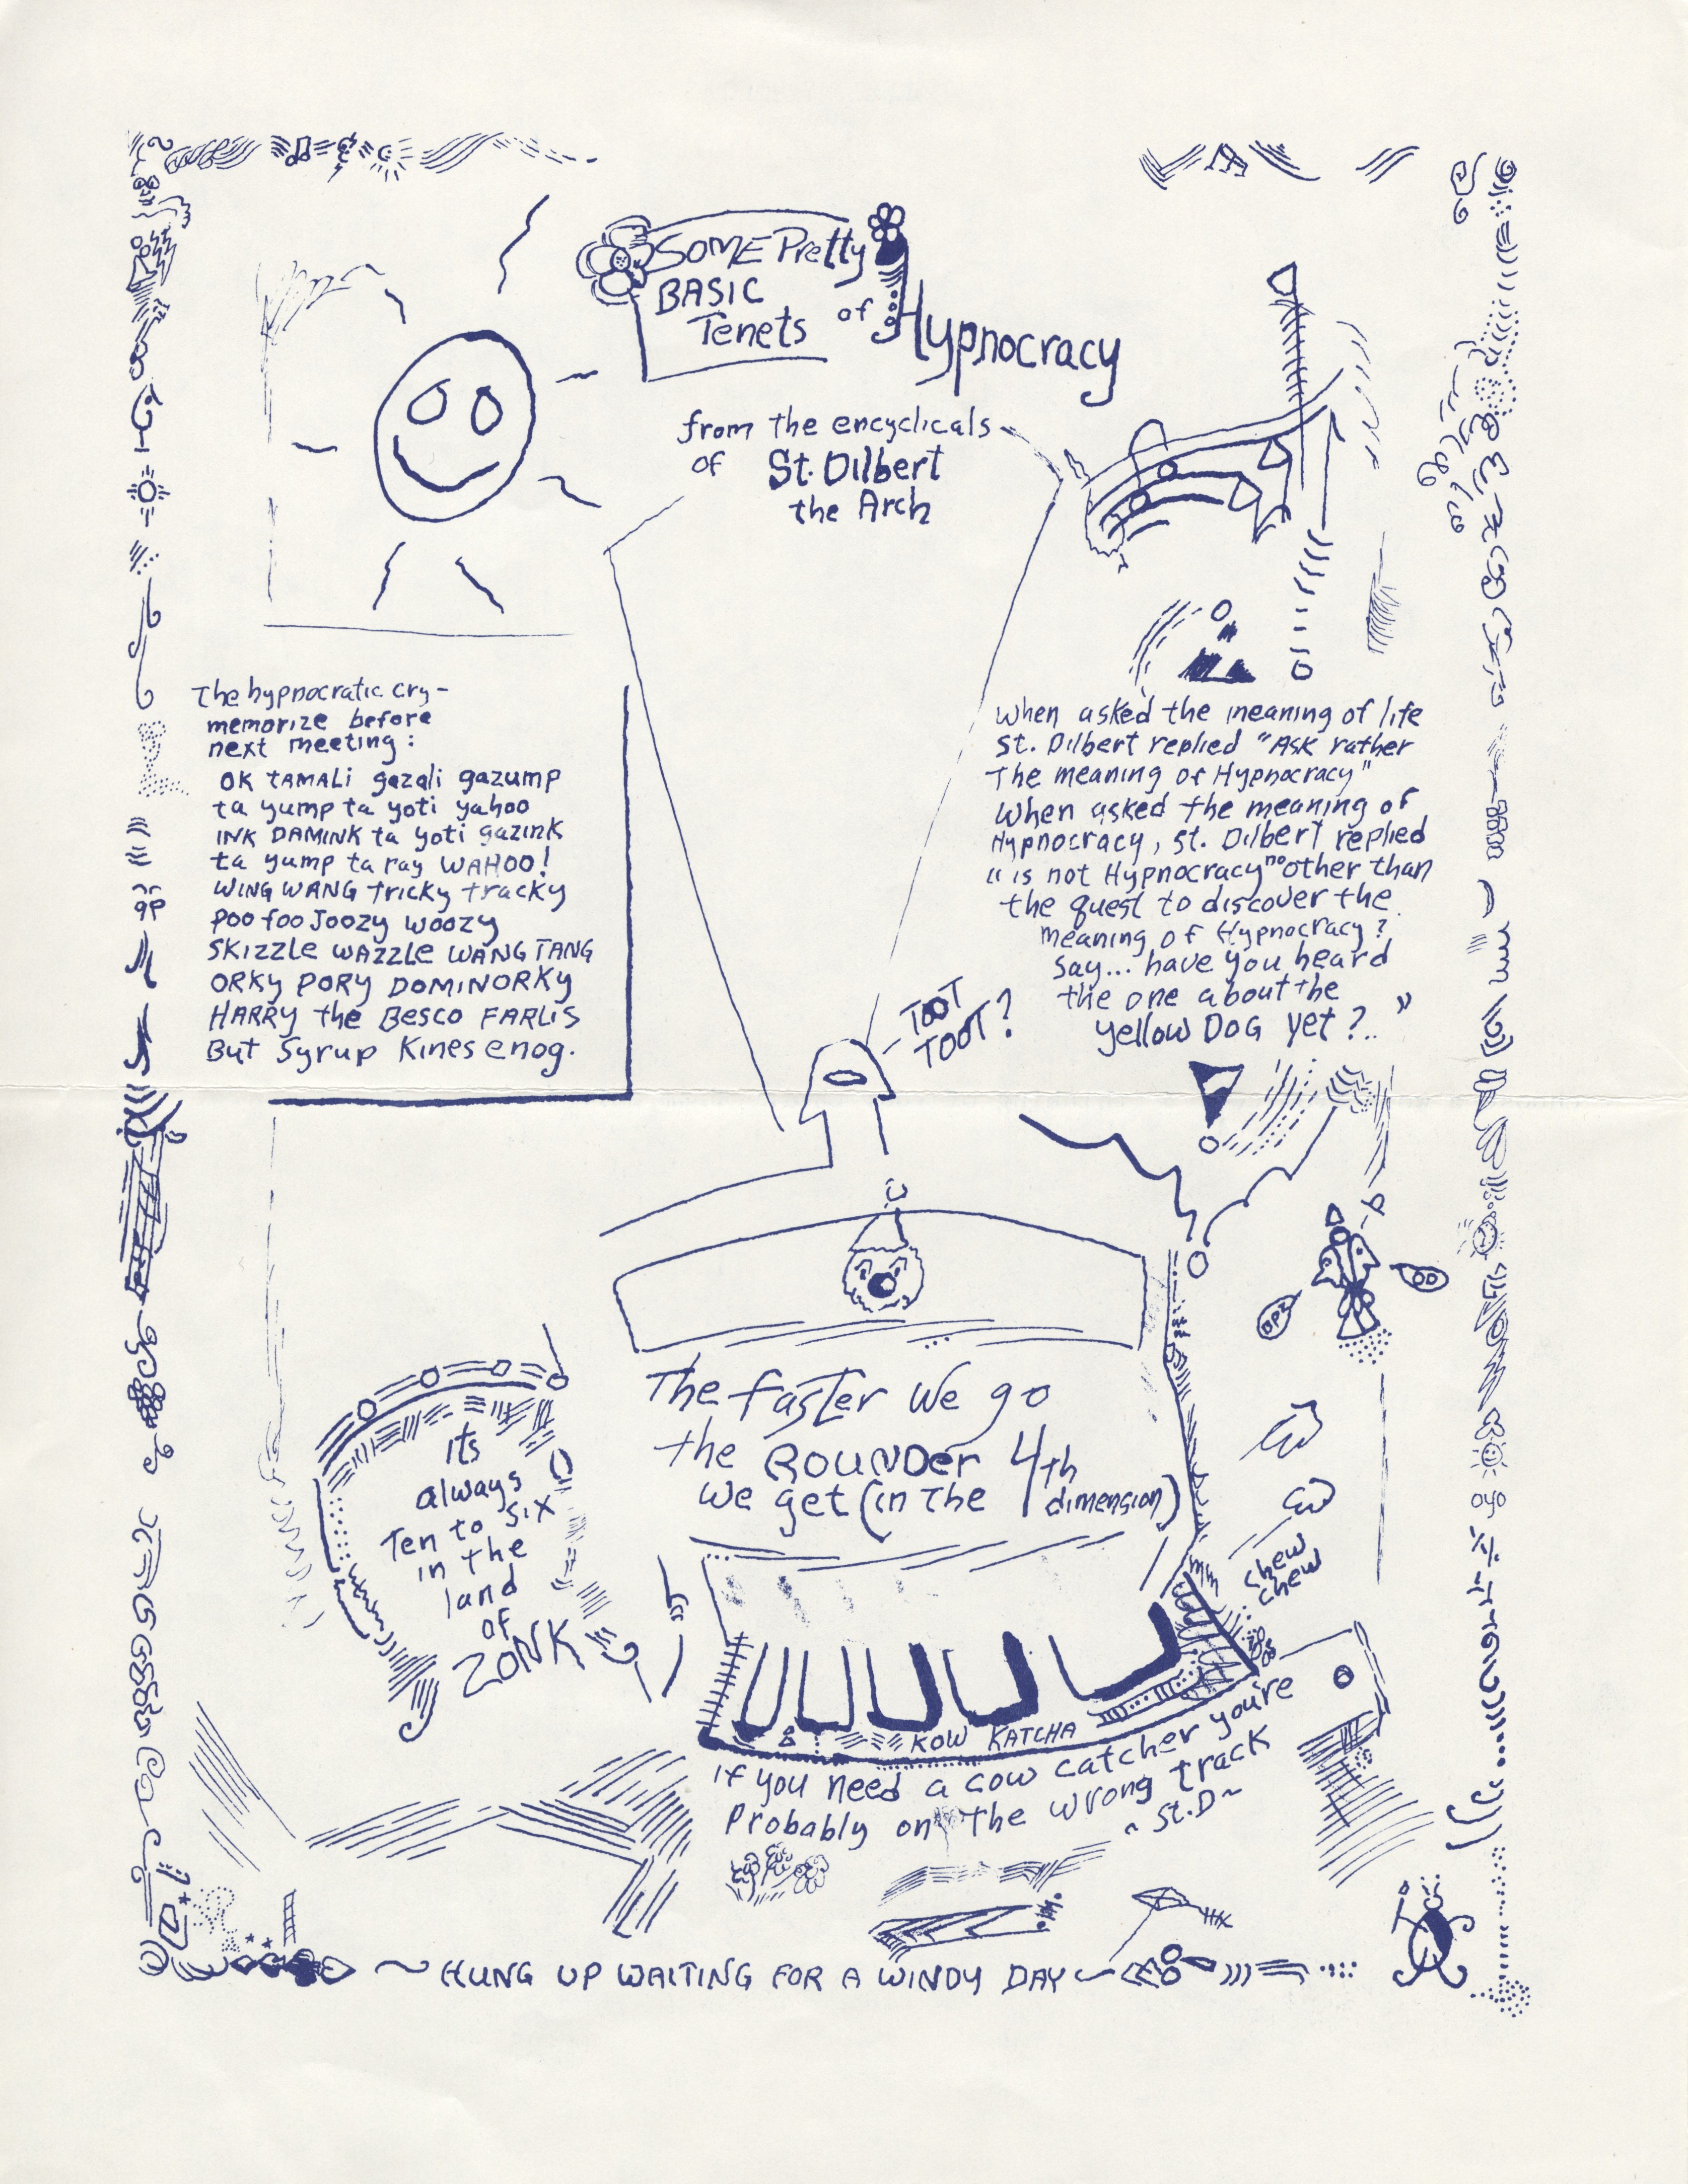 SOME Pretty
BASIC
Tenets of Hypnocracy
from the encyclicals
of St. Dilbert
the Arch
The hypnocratic cry-
memorize before
next meeting:
OK TAMALi gazali gazump
ta yump ta yoti yahoo
INK DAMINK ta yoti gazink
ta yump ta ray WAHOO!
WING WANG Tricky Tracky
Poo foo Joozy woozy
SKIZZLE WAZZLE WANG TANG
ORKY PORY DOMINORKY
HARRY the Besco FARLIS
But Syrup Kines enog.
When asked the meaning of life
St. Dilbert replied "Ask rather
The meaning of Hypnocracy"
When asked the meaning of
Hypnocracy, St. Dilbert replied
"is not Hypnocracy no other than
the quest to discover the
meaning of Hypnocracy?
Say... have you heard
the one about the
yellow DOG yet?.."
TOOT
TOOT?
The faster We go
the ROUNDer
we get (in The 4th dimension)
Its
always
Ten to six
in the
land
of
ZONK
chew
chew
KOW KATCHA
If you need a cow catcher you're
Probably on the wrong track
~ St. D ~
~ HUNG UP WAITING FOR A WINDY DAY ~